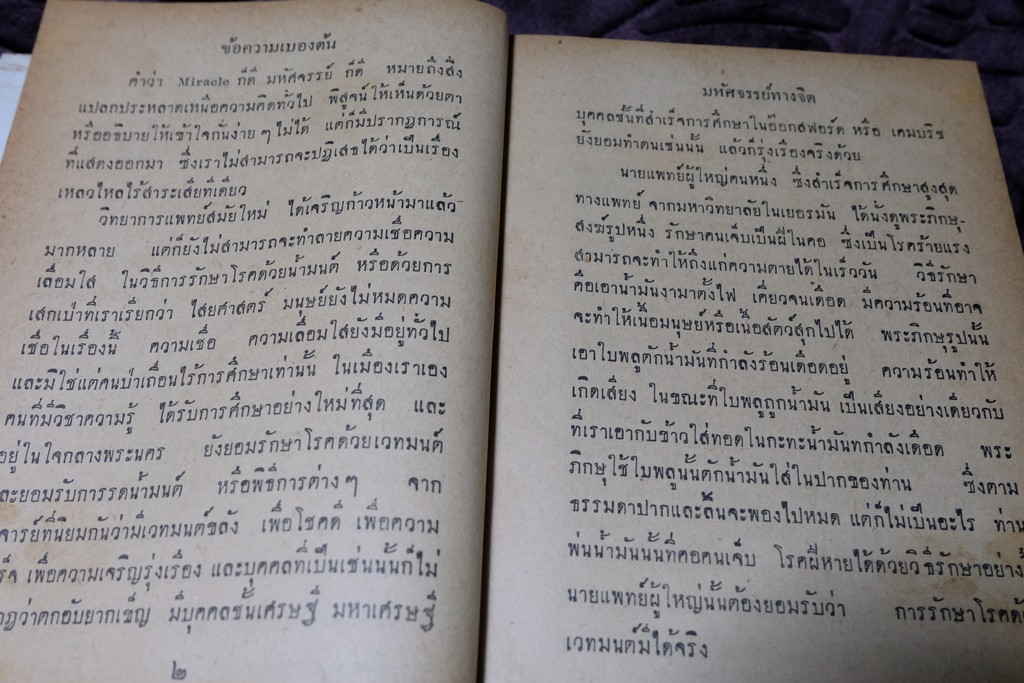 ข้อความเบองต้น
คำว่า Miracle ก็ดี มหัศจรรย์ ก็ดี หมายถึงสิ่ง
แปลกประหลาดเหนือความคิดทั่วไป พิสูจน์ให้เห็นด้วยตา
หรืออธิบายให้เข้าใจกันง่าย ๆ ไม่ได้ แต่ก็มีปรากฏการณ์
ที่แสดงออกมา ซึ่งเราไม่สามารถจะปฏิเสธได้ว่าเป็นเรื่อง
เหลวไหลไร้สาระเสียทีเดียว
วิทยาการแพทย์สมัยใหม่ ได้เจริญก้าวหน้ามาแล้ว
มากหลาย แต่ก็ยังไม่สามารถจะทำลายความเชื่อความ
เลื่อมใส ในวิธีการรักษาโรคด้วยน้ำมนต์ หรือด้วยการ
เสกเป่าที่เราเรียกว่า ไสยศาสตร์ มนุษย์ยังไม่หมดความ
เชื่อในเรื่องนี้ ความเชื่อ ความเลื่อมใสยังมีอยู่ทั่วไป
และมิใช่แต่คนป่าเถื่อนไร้การศึกษาเท่านั้น ในเมืองเราเอง
คนที่มีวิชาความรู้ ได้รับการศึกษาอย่างใหม่ที่สุด และ
อยู่ในใจกลางพระนคร ยังยอมรักษาโรคด้วยเวทมนต์
ละยอมรับการรดน้ำมนต์ หรือพิธีการต่าง ๆ จาก
จารย์ที่นิยมกันว่ามีเวทมนต์ขลัง เพื่อโชคดี เพื่อความ
เพื่อความเจริญรุ่งเรือง และบุคคลที่เป็นเช่นนั้นก็ไม่
ฏว่าตกอับยากเข็ญ มีบุคคลชั้นเศรษฐี มหาเศรษฐี
๒
มหัศจรรย์ทางจิต
บุคคลชั้นที่สำเร็จการศึกษาในอ๊อกสฟอร์ด หรือ เคมบริช
ยังยอมทำตนเช่นนั้น แล้วก็รุ่งเรืองจริงด้วย
นายแพทย์ผู้ใหญ่คนหนึ่ง ซึ่งสำเร็จการศึกษาสูงสุด
ทางแพทย์ จากมหาวิทยาลัยในเยอรมัน ได้นั่งดูพระภิกษุ-
สงฆ์รูปหนึ่ง รักษาคนเจ็บเป็นฝีในคอ ซึ่งเป็นโรคร้ายแรง
สามารถจะทำให้ถึงแก่ความตายได้ในเร็ววัน วิธีรักษา
คือเอาน้ำมันงามาตั้งไฟ เคี่ยวจนเดือด มีความร้อนที่อาจ
จะทำให้เนื้อมนุษย์หรือเนื้อสัตว์สุกไปได้ พระภิกษุรูปนั้น
เอาใบพลูตักน้ำมันที่กำลังร้อนเดือดอยู่ ความร้อนทำให้
เกิดเสียง ในขณะที่ใบพลูถูกน้ำมัน เป็นเสียงอย่างเดียวกับ
ที่เราเอากับข้าวใส่ทอดในกะทะน้ำมันทกำลังเดือด พระ
ภิกษุใช้ใบพลูนั้นตักน้ำมันใส่ในปากของท่าน ซึ่งตาม
ธรรมดาปากและลิ้นจะพองไปหมด แต่ก็ไม่เป็นอะไร ท่าน
พ่นน้ำมันนั้นที่คอคนเจ็บ โรคฝีหายได้ด้วยวิธีรักษาอย่าง
นายแพทย์ผู้ใหญ่นั้นต้องยอมรับว่า การรักษาโรคด้
เวทมนต์มีได้จริง